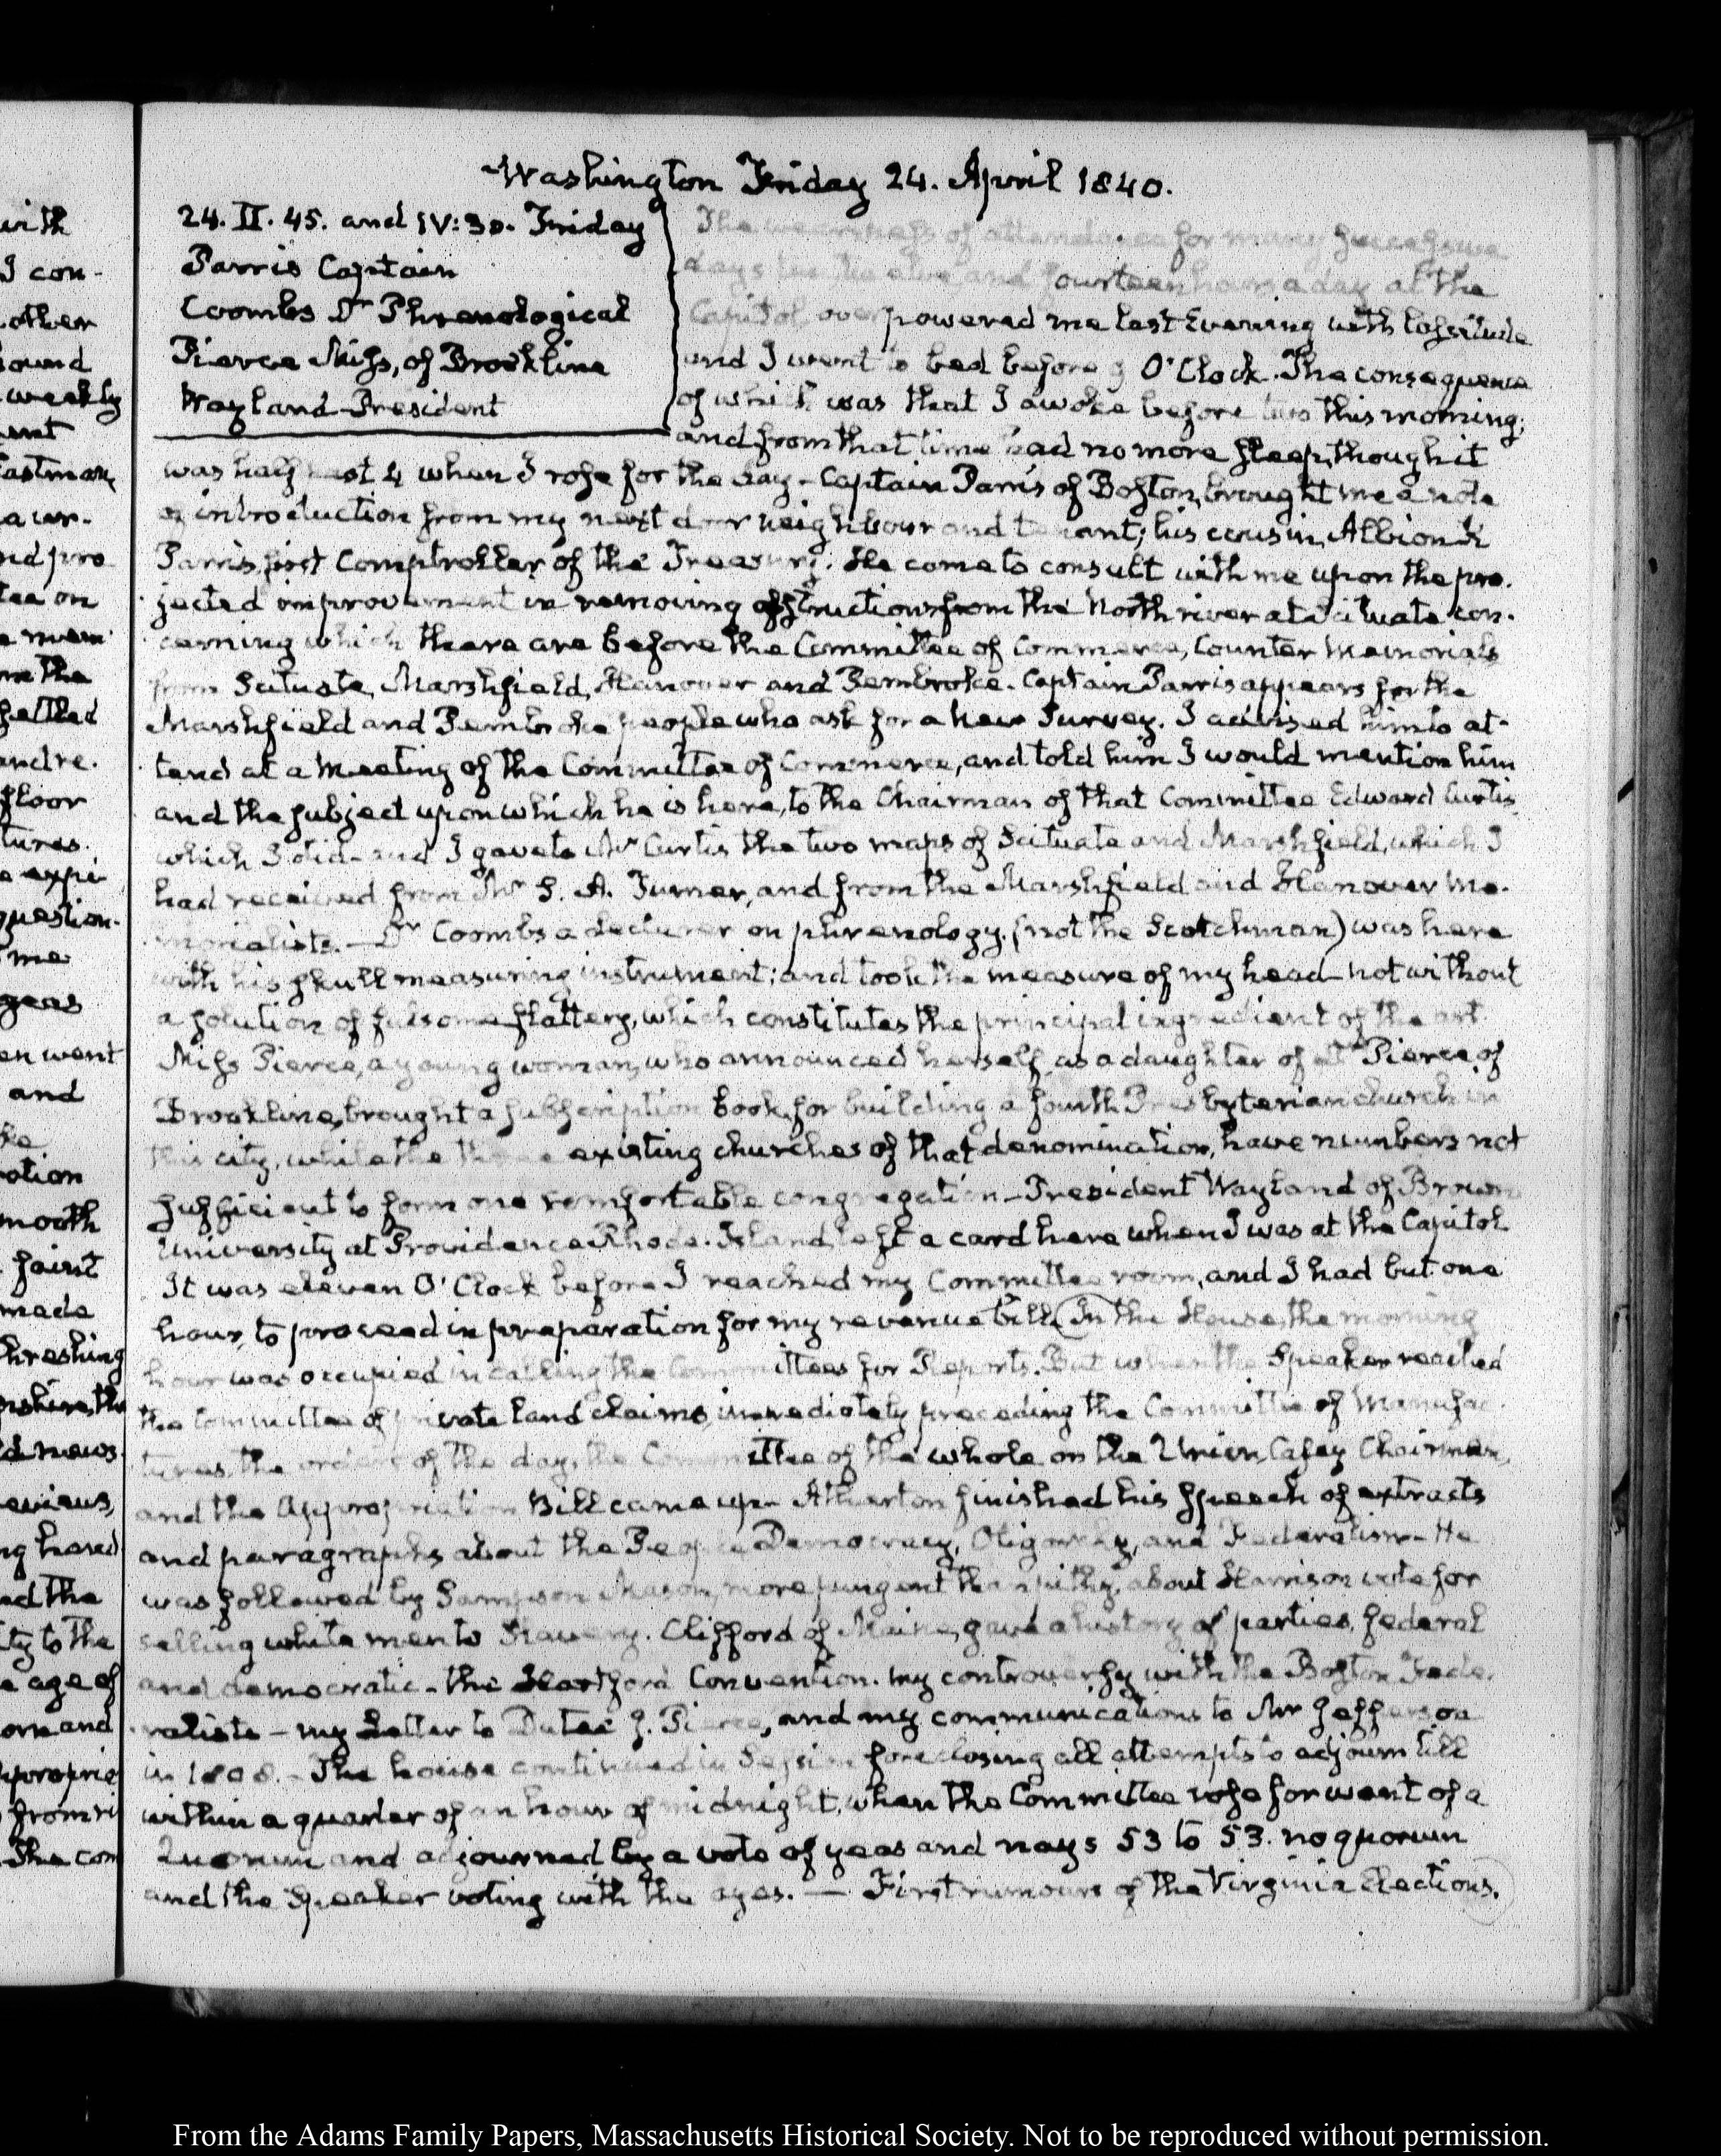 Washington Friday 24. April 1840.
24. II. 45. and IV:30. Friday
Parris Captain
Coombs Dr Phrenological
Pierce Miss, of Brookline
Wayland President
The weariness of attendance for many successive
days twelve and fourteen hours a day at the
Capitol, overpowered me last Evening with lassitude
and I went to bed before 9 O'Clock. The consequence
of which was that I awoke before two this morning;
and from that time had no more sleep, though it
was half past 4 when I rose for the day - Captain Parris of Boston, brought me a note
of introduction from my next door neighbour and tenant; his cousin, Albion K
Parris, first Comptroller of the Treasury. He came to consult with me upon the pro-
jected improvement in removing obstructions from the North river at Scituate con-
cerning which there are before the Committee of Commerce, Counter Memorials
from Scituate, Marshfield, Hanover and Pembroke. Captain Parris appears for the
Marshfield and Pembroke people who ask for a new Survey. I advised him to at-
tend at a meeting of the Committee of Commerce, and told him I would mention him
and the subject upon which he is here, to the Chairman of that Committee Edward Curtis
which I did - and I gave to Mr Curtis the two maps of Scituate and Marshfield, which I
had received from Mr S. A. Turner, and from the Marshfield and Hanover Me-
morialists. — Dr Coombs a lecturer on phrenology. (not the Scotchman) was here
with his skull measuring instrument; and took the measure of my head - not without
a solution of fulsome flattery, which constitutes the principal ingredient of the art.
Miss Pierce, a young woman, who announced herself as a daughter of Pierce of
Brookline, brought a subscription book, for building a fourth Presbyterian church in
this city, while the three existing churches of that denomination, have numbers not
sufficient to form one comfortable congregation - President Wayland of Brown
University at Providence Rhode-Island, left a card here when I was at the Capitol
It was eleven O'Clock before I reached my Committee room, and I had but one
hour, to proceed in preparation for my revenue bill. In the House, the morning
hour was occupied in calling the Committees for Reports. But when the Speaker reached
the Committee of private land claims, immediately preceding the Committee of Manufac-
tures, the orders of the day, the Committee of the whole on the Union, Casey Chairman,
and the Appropriation Bill came up - Atherton finished his speech of extracts
and paragraphs about the People Democracy, Oligarchy, and Federalism - He
was followed by Sampson Mason, more pungent than pithy, about Harrison vote for
selling white men to Slavery. Clifford of Maine, gave a history of parties, federal
and democratic - the Hartford Convention. my controversy with the Boston Fede-
ralists - my Letter to Dutee J. Pierce, and my communications to Mr Jefferson
in 1808. - The house continued in Session foreclosing all attempts to adjourn till
within a quarter of an hour of midnight, when the Committee rose for want of a
Quorum and adjourned by a vote of yeas and nays 53 to 53. no quorum
and the Speaker voting with the ayes. — First rumours of the Virginia Elections.
From the Adams Family Papers, Massachusetts Historical Society. Not to be reproduced without permission.